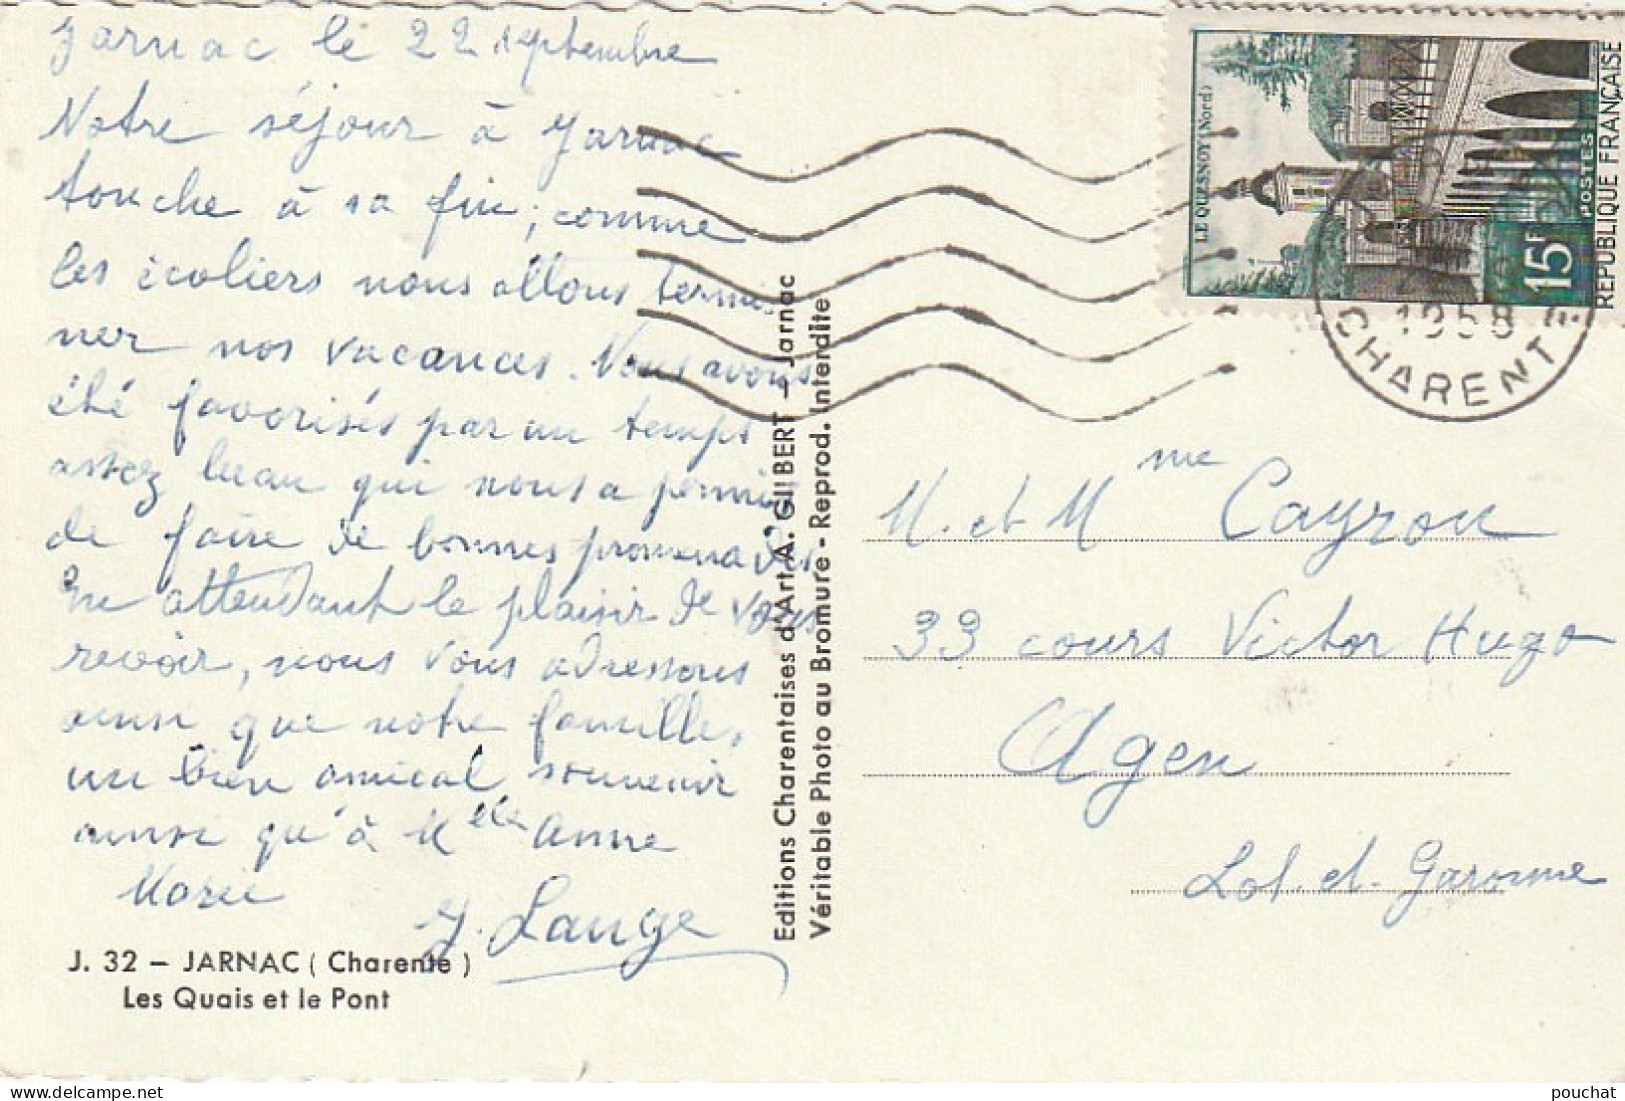 Jarnac le 22 septembre
Notre séjour à Jarnac
touche à sa fin, comme
les écoliers nous allons termi
ner nos vacances. Nous avons
été favorisés par un temps
assez beau qui nous a permis
de faire de bonnes promenades
En attendant le plaisir de vous
revoir, nous vous adressons
ainsi que notre famille,
un bien amical souvenir
ainsi qu'à Mlle Anne
Marie
J. Lange
J. 32 – JARNAC ( Charente )
Les Quais et le Pont
Editions Charentaises d'Art A. GILBERT – Jarnac
Véritable Photo au Bromure - Reprod. Interdite
LE QUESNOY (Nord)
POSTES
15F
REPUBLIQUE FRANÇAISE
1958
CHARENTE
M. et Mme Cayrou
33 cours Victor Hugo
Agen
Lot-et-Garonne
pouchat